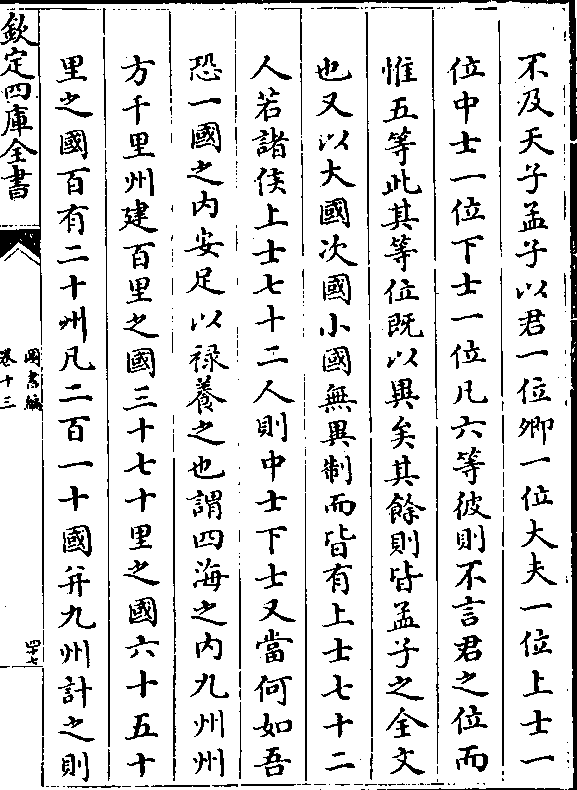 不及天子孟子以君一位卿一位大夫一位上士一
位中士一位下士一位凡六等彼則不言君之位而
惟五等此其等位既以異矣其餘則皆孟子之全文
也又以大國次國小國無異制而皆有上士七十二
人若諸侯上士七十二人則中士下士又當何如吾
恐一國之内安足以祿養之也謂四海之内九州州
方千里州建百里之國三十七十里之國六十五十
里之國百有二十州凡二百一十國并九州計之則
欽定四庫全書
圖書編
卷十三
四十七